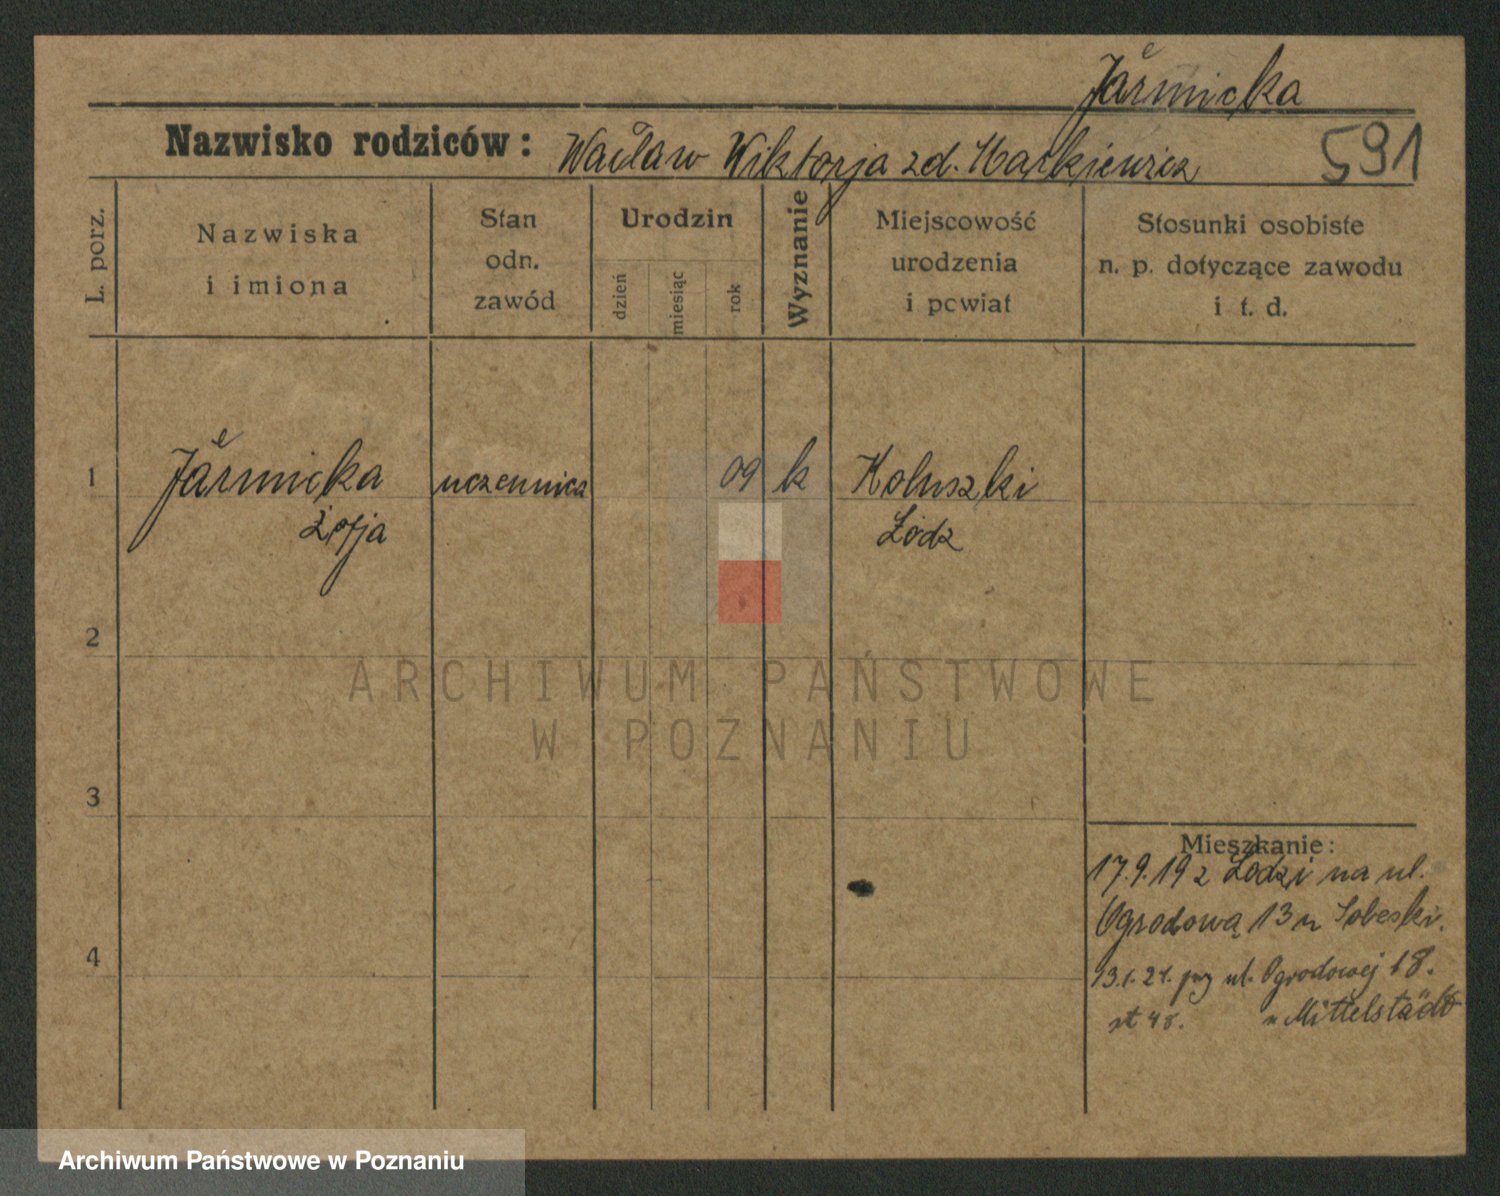 Jarmicka
Nazwisko rodziców: Wacław Wiktorja zd. Markiewicz 591
L. porz.
Nazwiska
i imiona
Stan
odn.
zawód
Urodzin
dzień
miesiąc
rok
Wyznanie
Miejscowość
urodzenia
i pcwiat
Stosunki osobiste
n. p. dotyczące zawodu
i t. d.
1 Jarmicka uczennica 09 k Koluszki
Zofja Łódz
2
ARCHIWUM PAŃSTWOWE
W POZNANIU
3
Mieszkanie:
17.9.19 z Łodzi na ul.
Ogrodową 13 u Sobeski.
4
13.1.21. przy ul. Ogrodowej 18.
u Mittelstädt
Archiwum Państwowe w Poznaniu